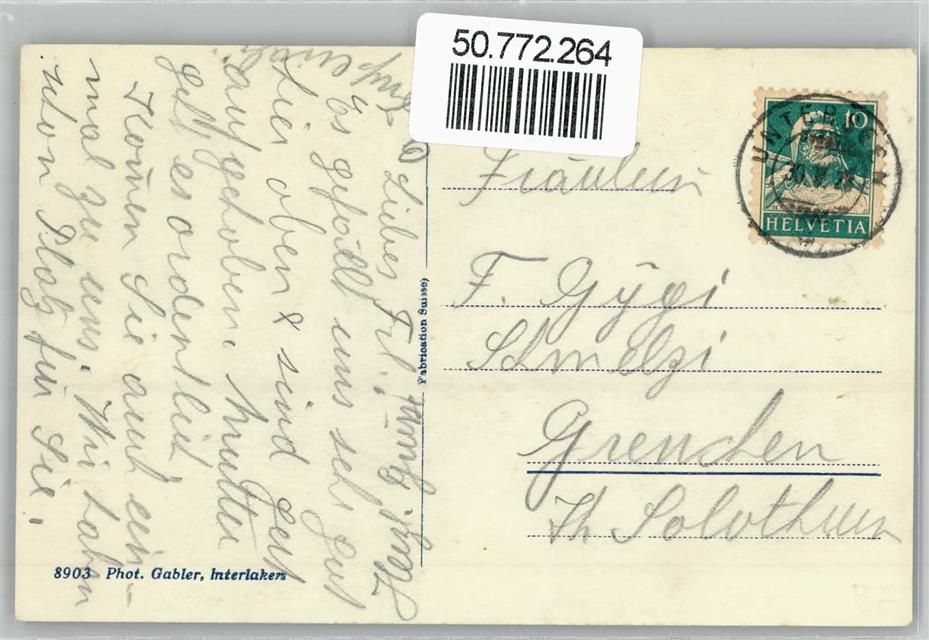 50.772.264
10
HELVETIA
Fräulein
F. Gygi
Schmelzi
Grenchen
Kt. Solothurn
Liebes Frl.!
Es gefällt uns sehr gut
hier oben & sind gut
aufgehoben. Mutter
geht es ordentlich.
Kommen Sie auch ein-
mal zu uns. Wir haben
schon Platz für Sie.
Fabrication Suisse
8903 Phot. Gabler, Interlaken